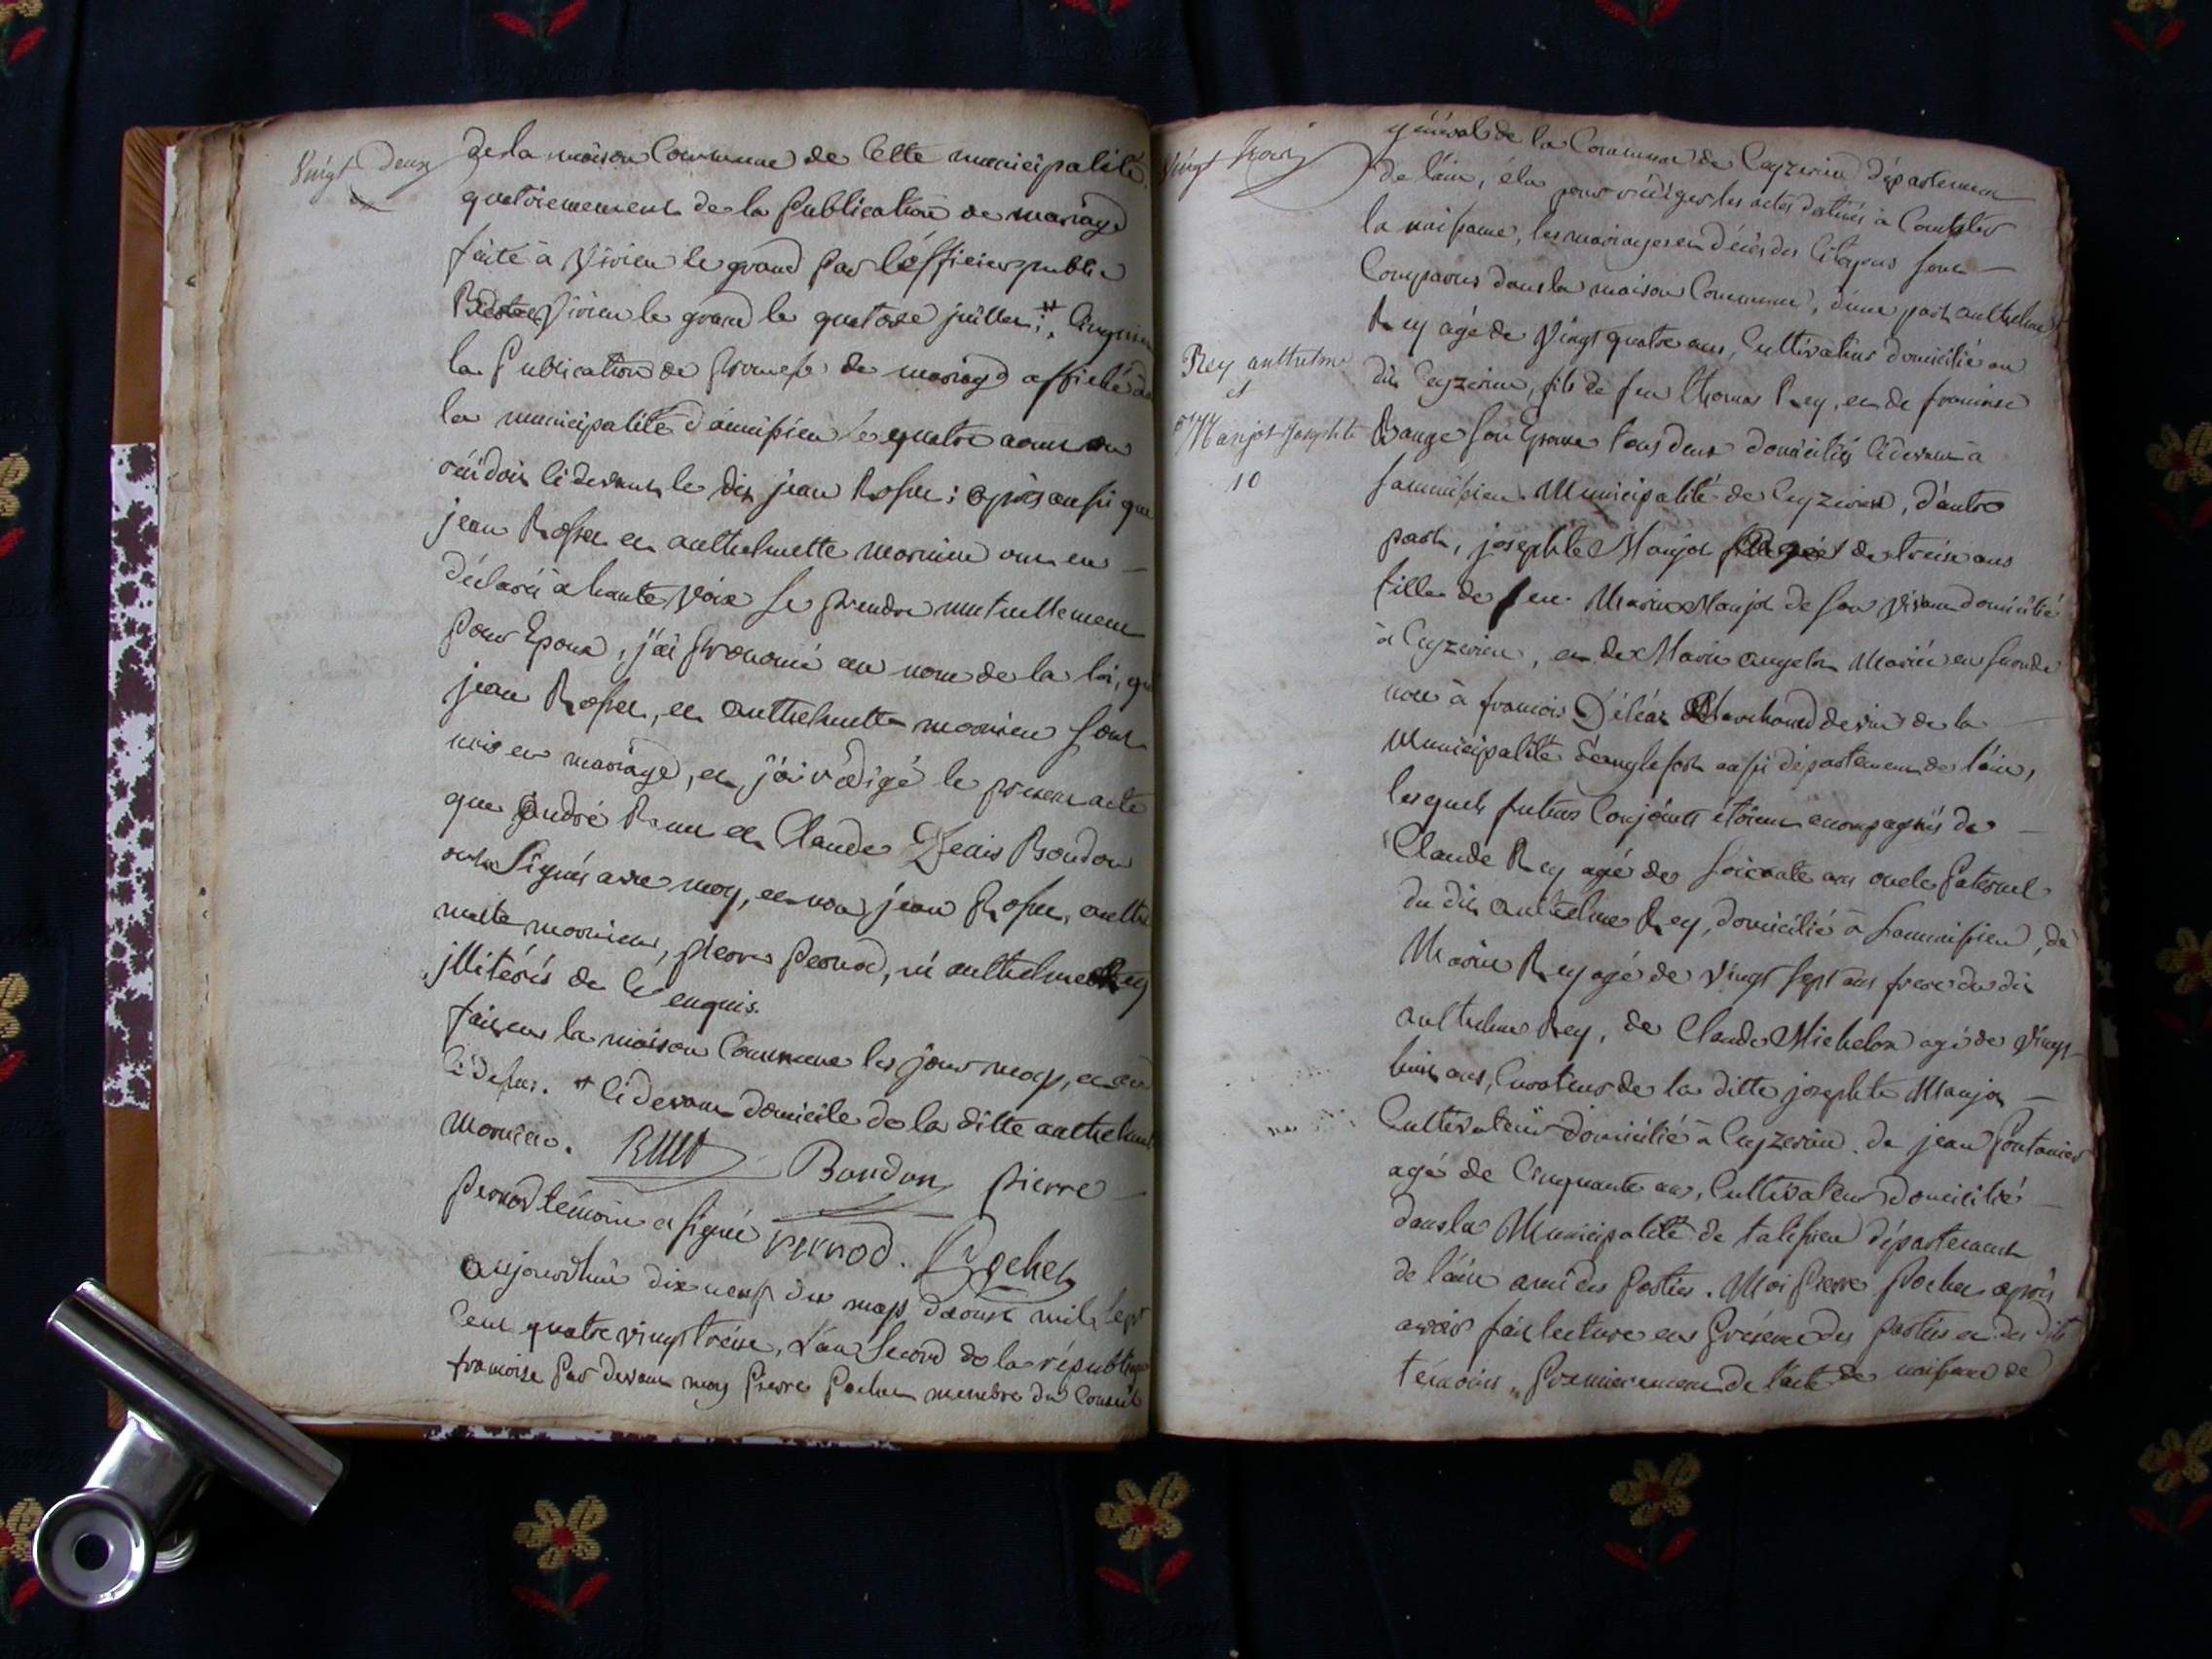 Vingt Deux
de la maison Commune de Cette municipalité
quatriemement de la publication de mariage
faite à Virieu le grand par l'officier public
Virieu le grand le quatorze juillet
la publication de promesse de mariage affichée
la municipalité le quatre aout
résidoit cidevant le dit jean Rosset : après aussi que
jean Rosset et anthelmette mornieu ont
déclaré à haute voix se prendre mutuellement
pour Epoux, j'ai prononcé au nom de la loi, que
jean Rosset, et anthelmette mornieu sont
unis en mariage, et j'ai rédigé le present acte
que andré et Claude Denis Bondon
ont signés avec moy, et non jean Rosset, anthel
mette mornieu, pierre pernod, ni anthelme Rey
illitérés de ce enquis.
fait en la maison Commune les jour mois, et an
cidessus. # cidevant domicile de la ditte anthelmette
mornieu. Bondon pierre
pernod témoin a signé pernod. Pochet
aujourdhui dix neuf du mois daoust mil sept
cent quatre vingt treise, L'an second de la république
francoise par devant moy pierre pochet membre du Conseil
Vingt trois
général de la Commune de Ceyzerieu département
de l'ain, élu pour rédiger les actes destinés à Constater
la naissance, les mariages et décès des Citoyens sont
Comparus dans la maison Commune, d'une part anthelme
Rey agé de vingt quatre ans, Cultivateur domicilié au
dit Ceyzerieu, fils de feu thomas Rey, et de francoise
son Epouse tous deux domiciliés cidevant à
Municipalité de Ceyzerieu, d'autre
part, josephte Manjot agée de treise ans
fille de feu Marin Manjot de son vivant domicilié
à Ceyzerieu, et de Marie mariée en seconde
noce à francois Marchand de vin de la
Municipalité d'anglefort aussi département de l'ain,
lesquels futurs Conjoints étoient accompagnés de
Claude Rey agé de soixante ans oncle paternel
du dit anthelme Rey, domicilié à
Marin Rey agé de vingt sept ans frere du dit
anthelme Rey, de Claude Michelon agé de vingt
huit ans, Curateur de la ditte josephte Manjot
Cultivateur domicilié à Ceyzerieu. de jean
agé de Cinquante ans, Cultivateur domicilié
dans la Municipalité de talissieu département
de l'ain ami des parties. Moi pierre pochet après
avoir fait lecture en présence des parties et des dits
témoins, premierement de l'acte de naissance de
Rey anthelme
et
Manjot Josephte
10